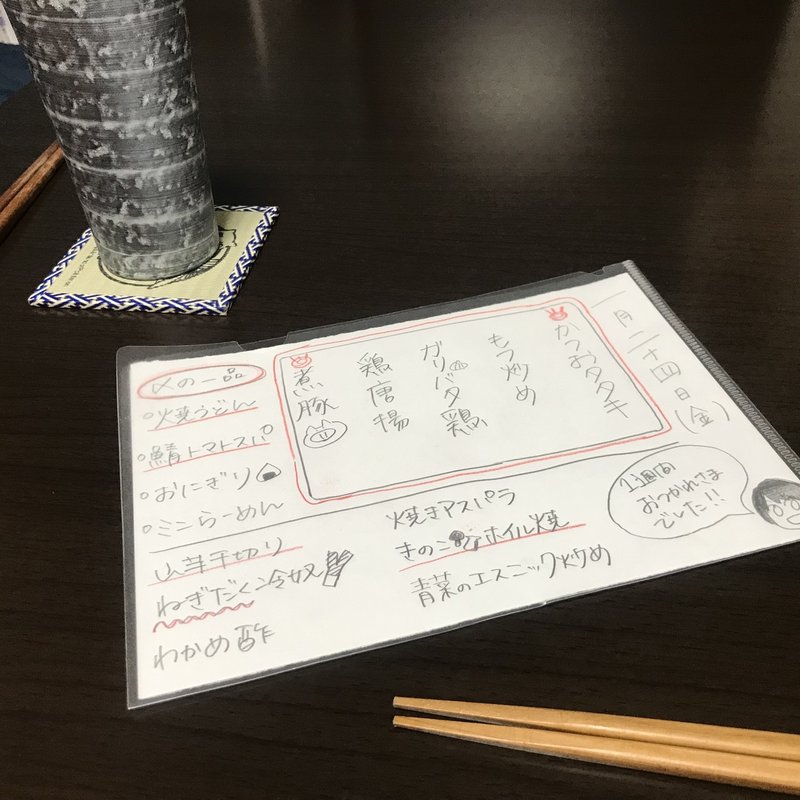 一月二十四日(金)
かつおタタキ
もつ炒め
ガリバタ鶏
鶏唐揚
煮豚
〆の一品
焼うどん
鯖トマトスパ
おにぎり
ミニらーめん
山芋千切り
ねぎだく冷奴
わかめ酢
焼きアスパラ
きのこホイル焼
青菜のエスニック炒め
1週間
おつかれさま
でした!!